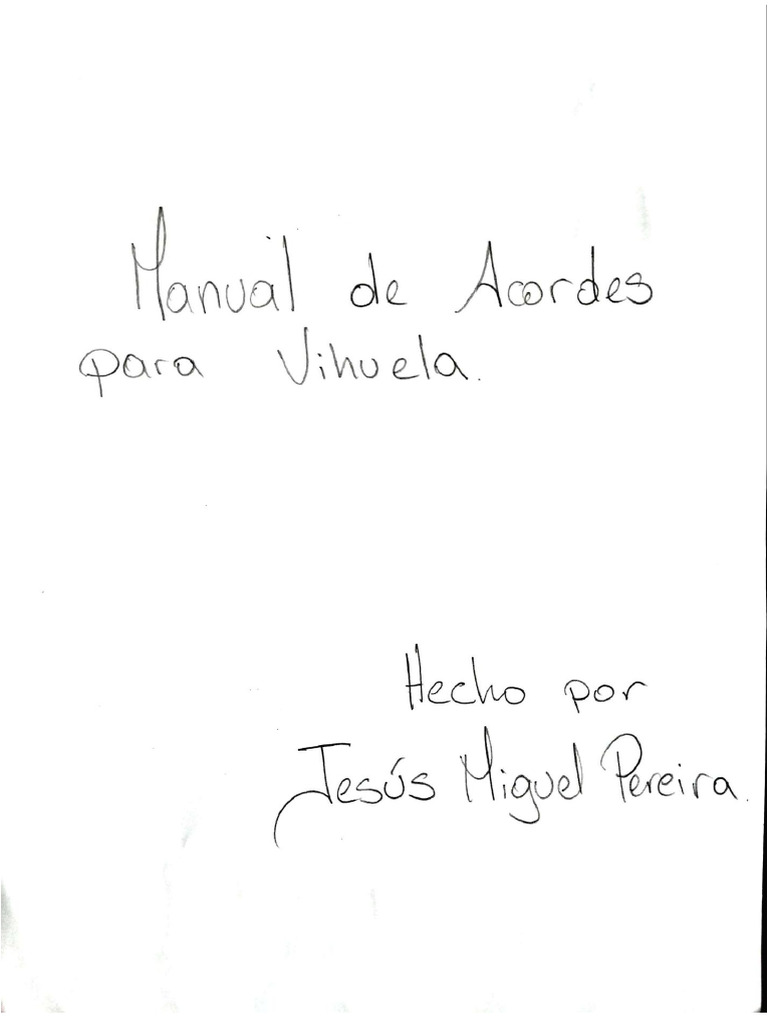 Manual de Acordes
para Vihuela.
Hecho por
Jesús Miguel Pereira.